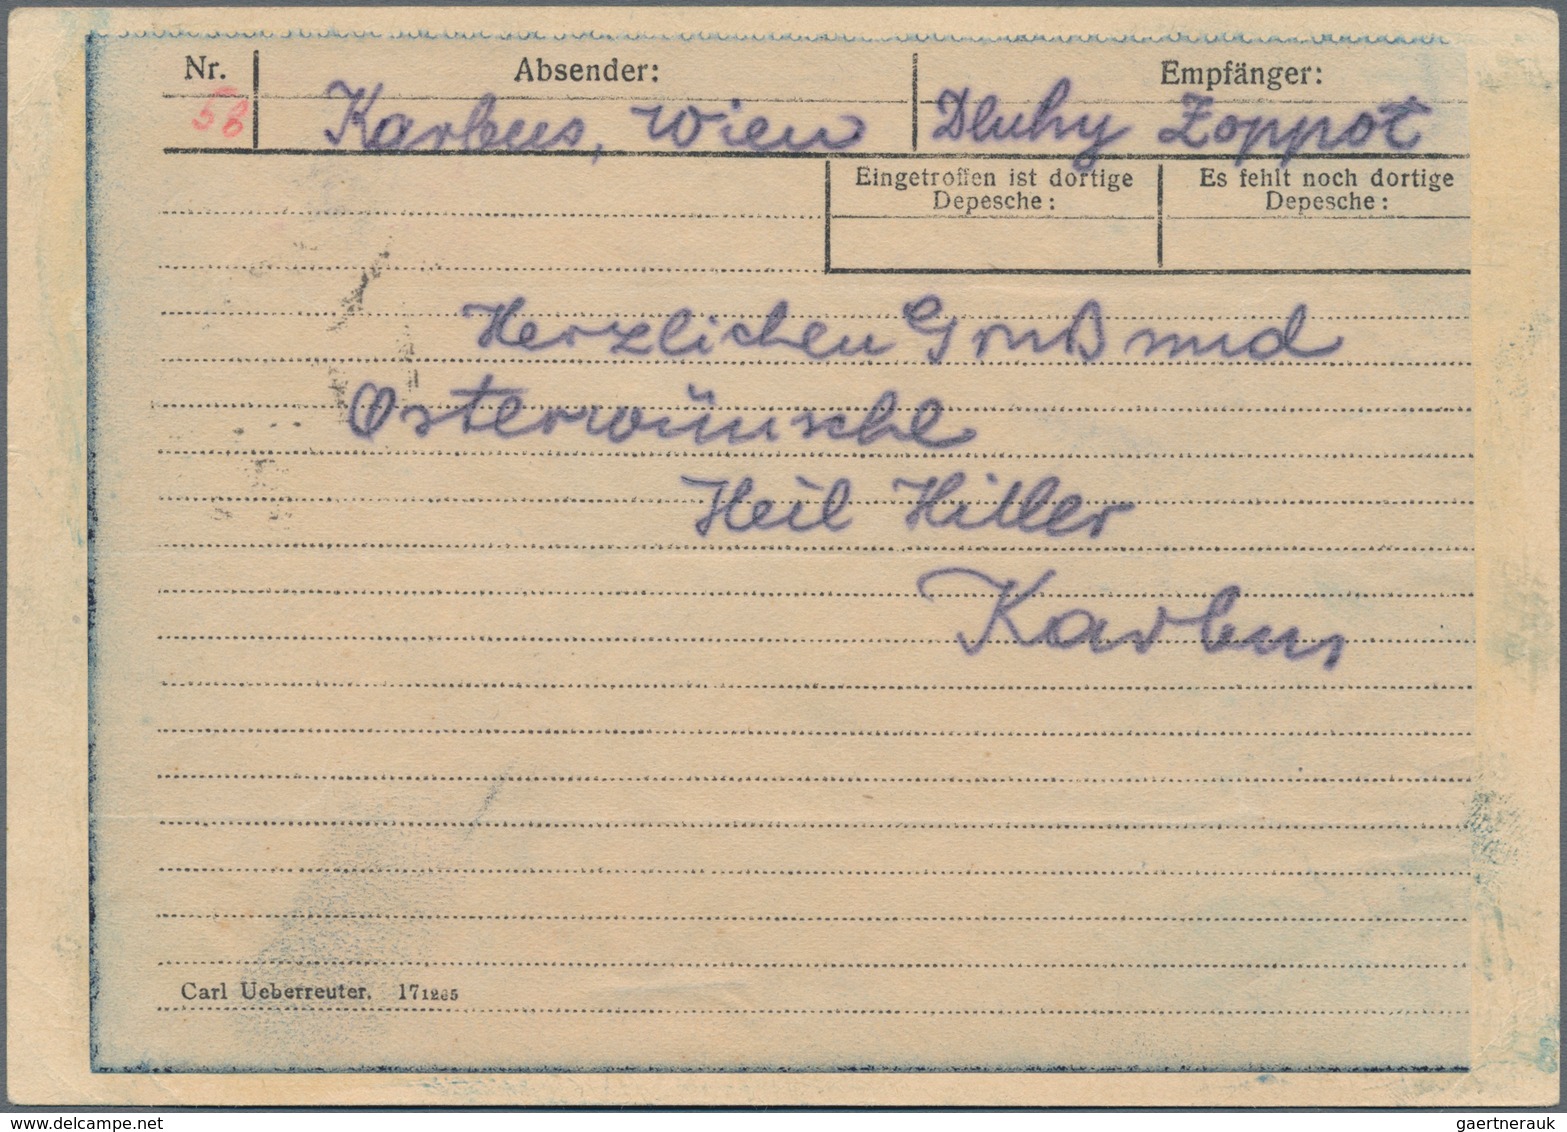 Nr. Absender: Empfänger:
58 Karbus, Wien Dluhy Zoppot
Eingetroffen ist dortige Depesche: Es fehlt noch dortige Depesche:
Herzlichen Gruß und
Osterwünsche
Heil Hitler
Karbus
Carl Ueberreuter. 171265
delcampe.net
gaertnerauk